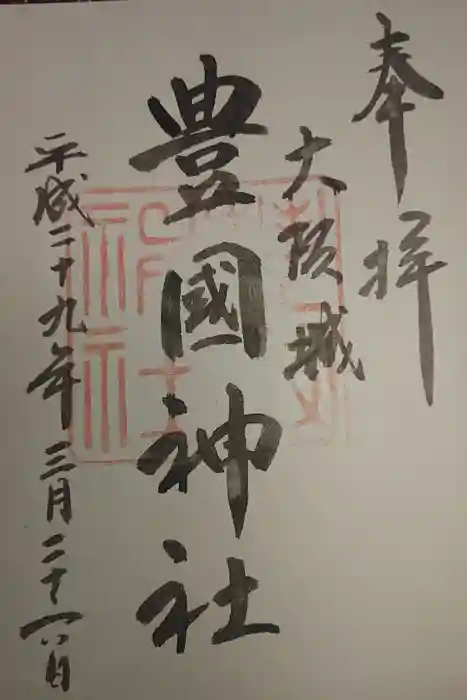 奉拝
大阪城
豊國神社
平成二十九年三月二十六日